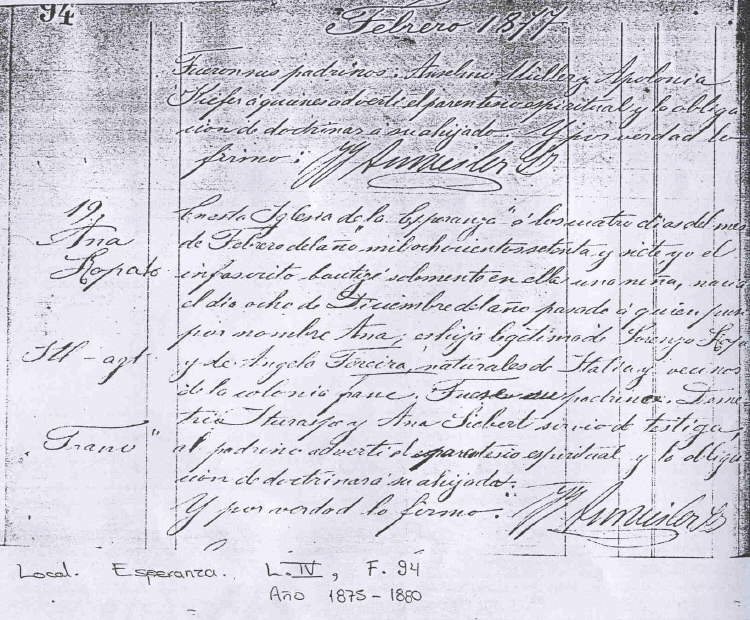 94
Febrero 1877
Fueron sus padrinos. Anselmo Müller y Apolonia
Kiefer á quienes advertí el parentesco espiritual y la obliga
cion de doctrinar a su ahijado. Y por verdad lo
firmo:
19
Ana
Kopato
Itl - agt
Franc"
En esta Iglesia de la Esperanza" á los cuatro dias del mes
de Febrero del año mil ochocientos setenta y siete yo el
infascrito bautizé solemente en ella una niña, nacid
el dia ocho de Diciembre del año pasado á quien puse
por nombre Ana, es hija legitima de Lorenzo Kopa
y de Angela Torcira, naturales de Italia y vecinos
de la colonia franc. padrino. Deme
trio Ituraspe y Ana Siebert servió d testiga,
al padrino advertí el parentesco espiritual y la obliga
cion de doctrinar á su ahijada.
Y por verdad lo firmo.
Local. Esperanza. L. IV, F. 94
Año 1875-1880